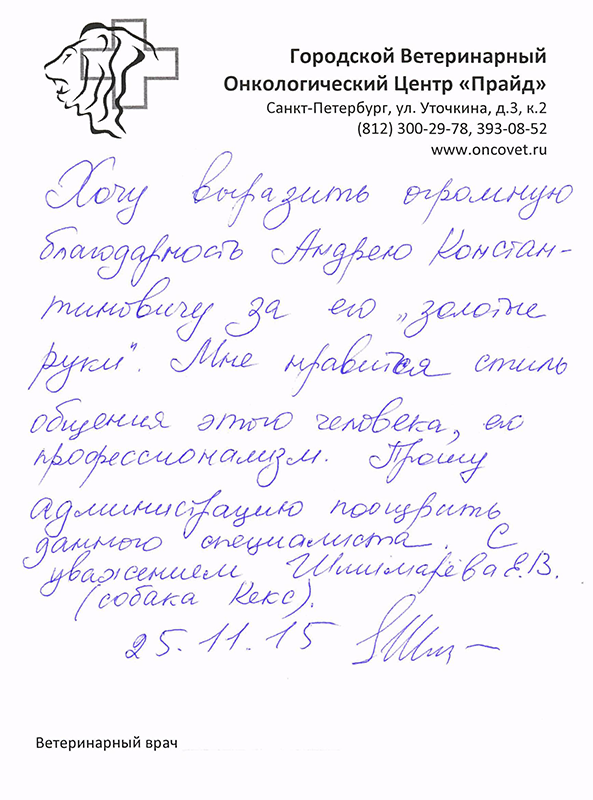 Городской Ветеринарный
Онкологический Центр «Прайд»
Санкт-Петербург, ул. Уточкина, д.3, к.2
(812) 300-29-78, 393-08-52
www.oncovet.ru
Хочу выразить огромную
благодарность Андрею Констан-
тиновичу за его „золотые
руки". Мне нравится стиль
общения этого человека, его
профессионализм. Прошу
администрацию поощрить
данного специалиста. С
уважением, Шишмарёва Е.В.
(собака Кекс).
25.11.15
Ветеринарный врач